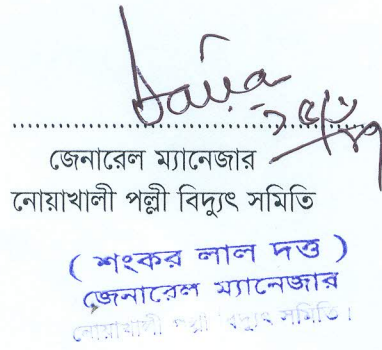 জেনারেল ম্যানেজার
নোয়াখালী পল্লী বিদ্যুৎ সমিতি
( শংকর লাল দত্ত )
জেনারেল ম্যানেজার
নোয়াখালী পল্লী বিদ্যুৎ সমিতি।